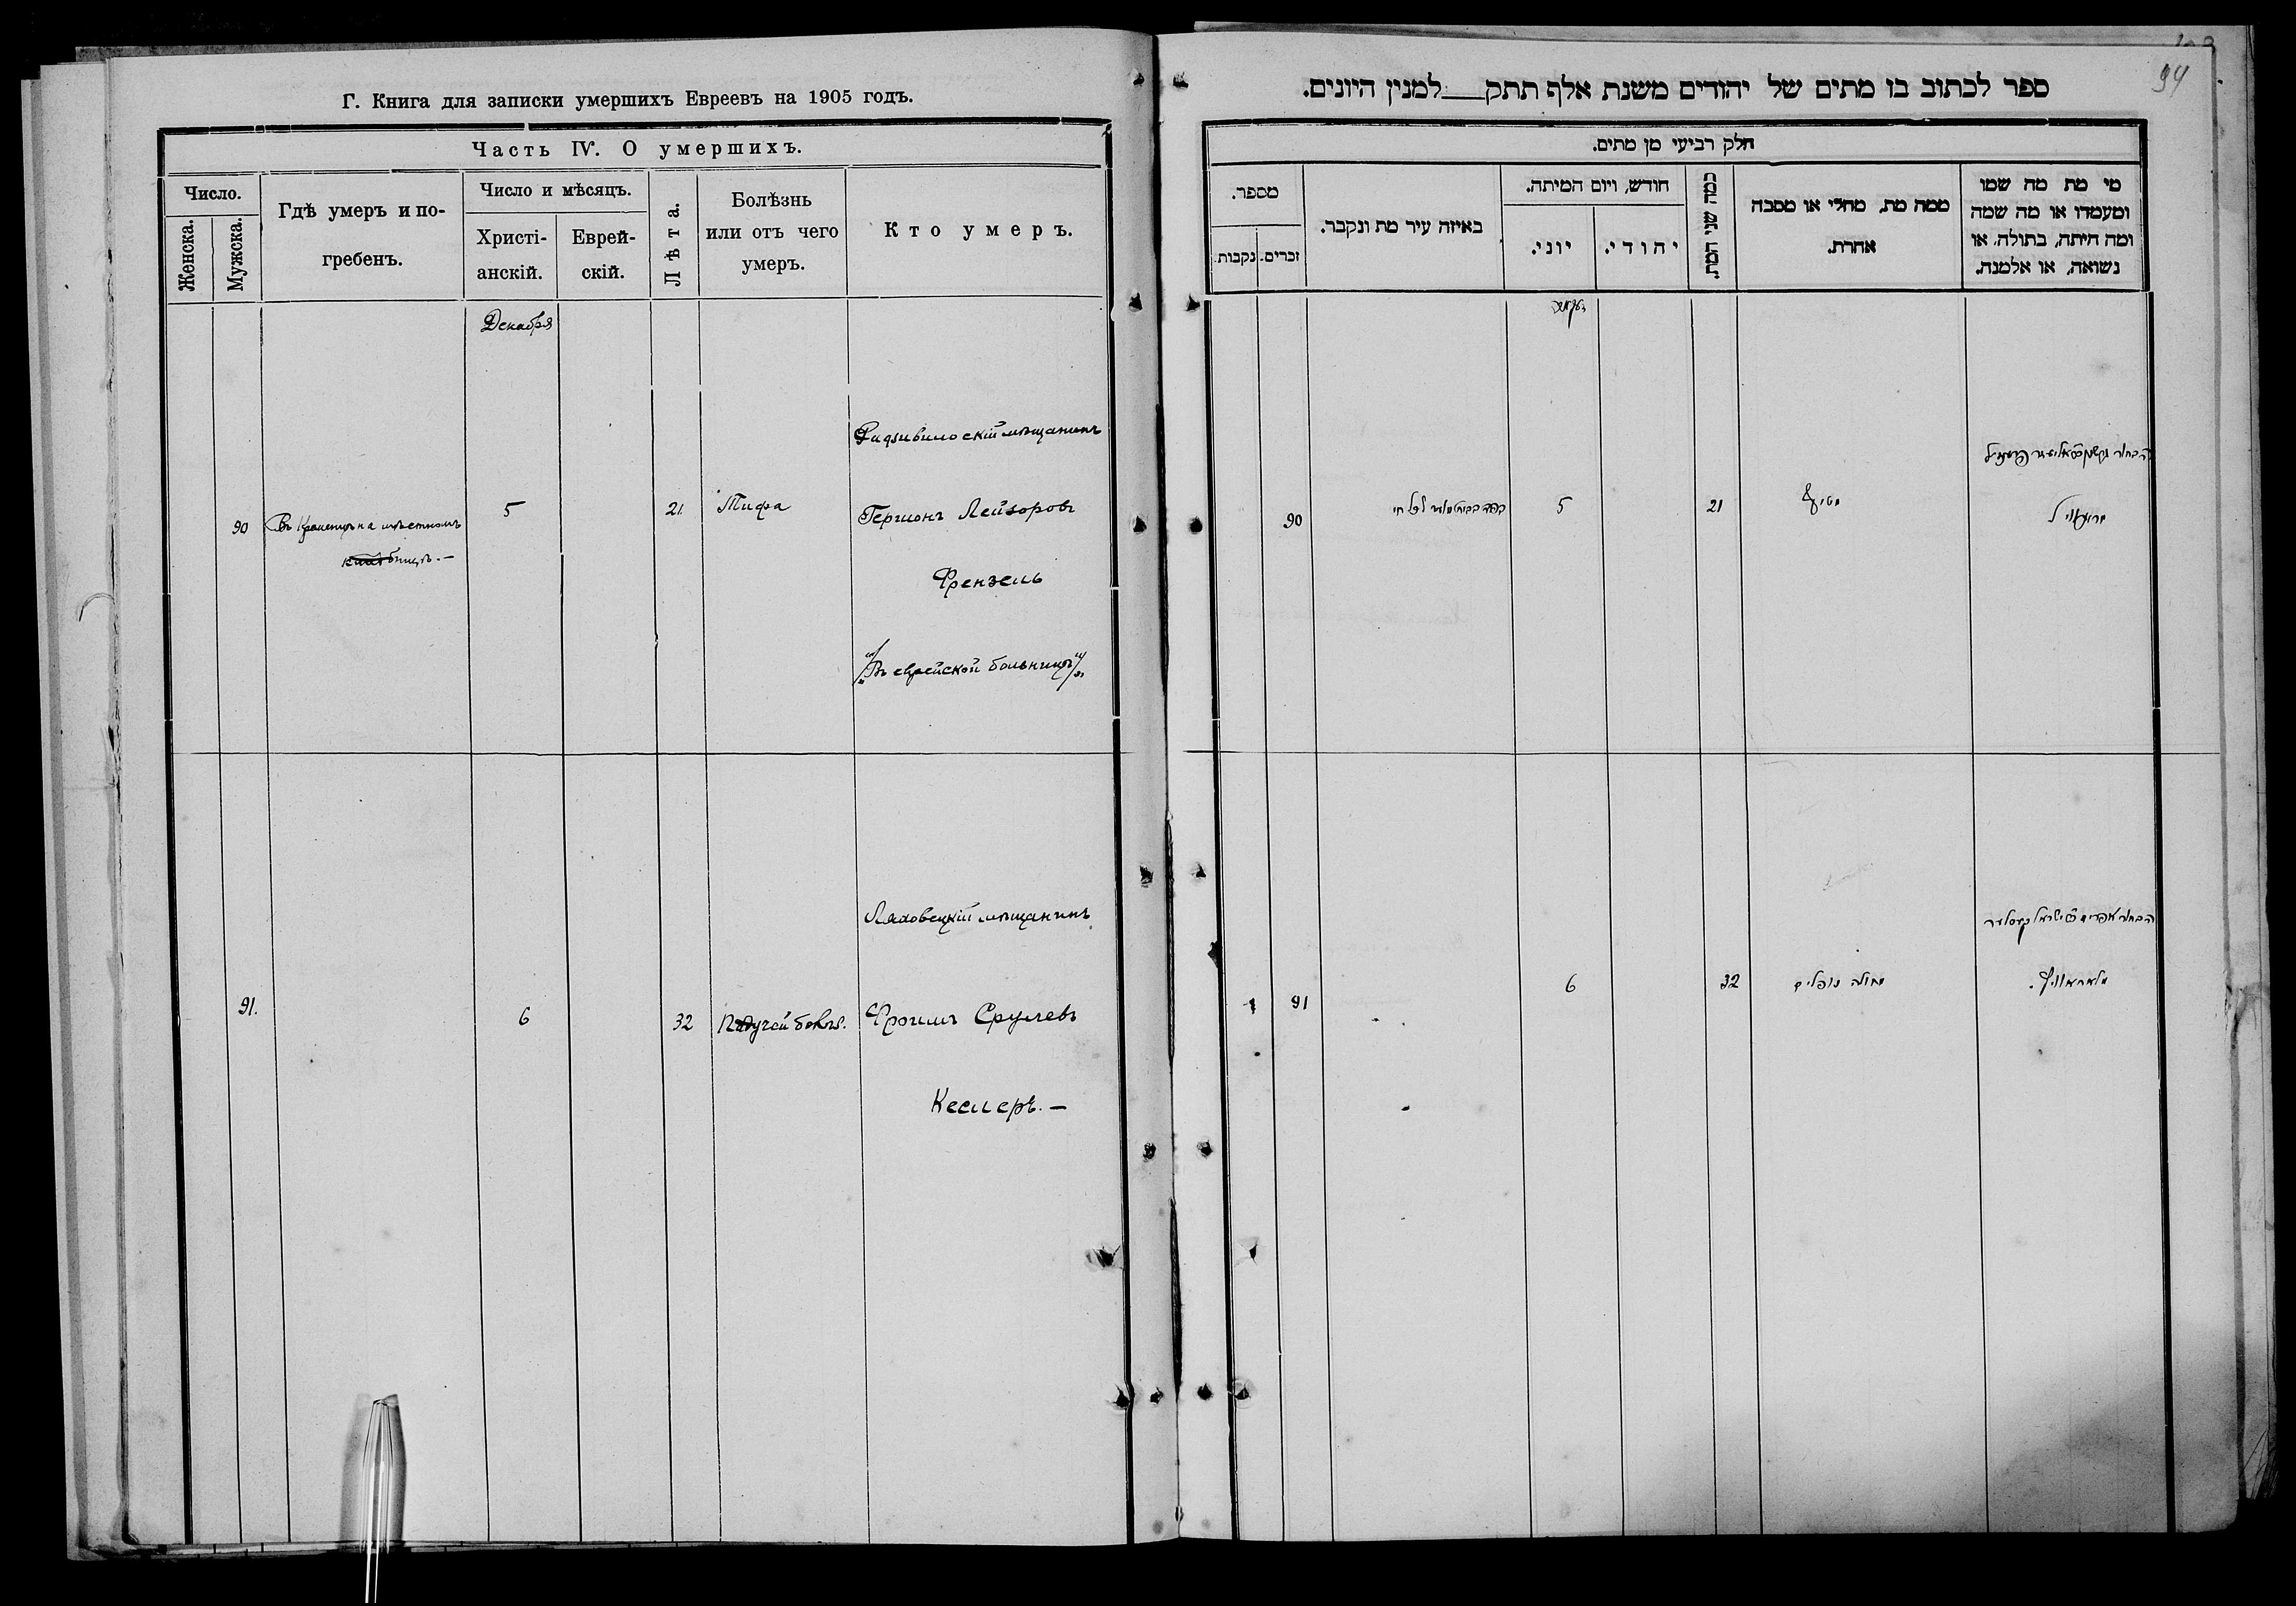 Г. Книга для записки умершихъ Евреевъ на 1905 годъ.
Часть IV. О умершихъ.
Число.
Женска.
Мужска.
Гдѣ умеръ и по-
гребенъ.
Число и мѣсяцъ.
Христі-
анскій.
Еврей-
скій.
Лѣта.
Болѣзнь
или отъ чего
умеръ.
Кто умеръ.
Декабря
90
Въ Кременцѣ на мѣстномъ
5
21
Тифа
Радзивиловскій мѣщанинъ
Гершонъ Лейзоровъ
Френзель
Въ еврейской больницѣ
91.
6
32
Падучей болѣз.
Ляховецкій мѣщанинъ
Фроимъ Срулевъ
Кеслеръ. —
94
ספר לכתוב בו מתים של יהודים משנת אלף תתק למנין היונים.
חלק רביעי מן מתים.
מספר.
נקבות.
זכרים.
באיזה עיר מת ונקבר.
חודש, ויום המיתה.
יוני.
יהודי.
כמה שני המת.
ממה מת, מחלי או מסבה
אחרת.
מי מת מה שמו
ומעמדו או מה שמה
ומה היתה, בתולה, או
נשואה, או אלמנה.
90
5
21
טיף
הבחור
91
6
32
מחלה נופלים
הבחור אפרים ישראל קעסלער